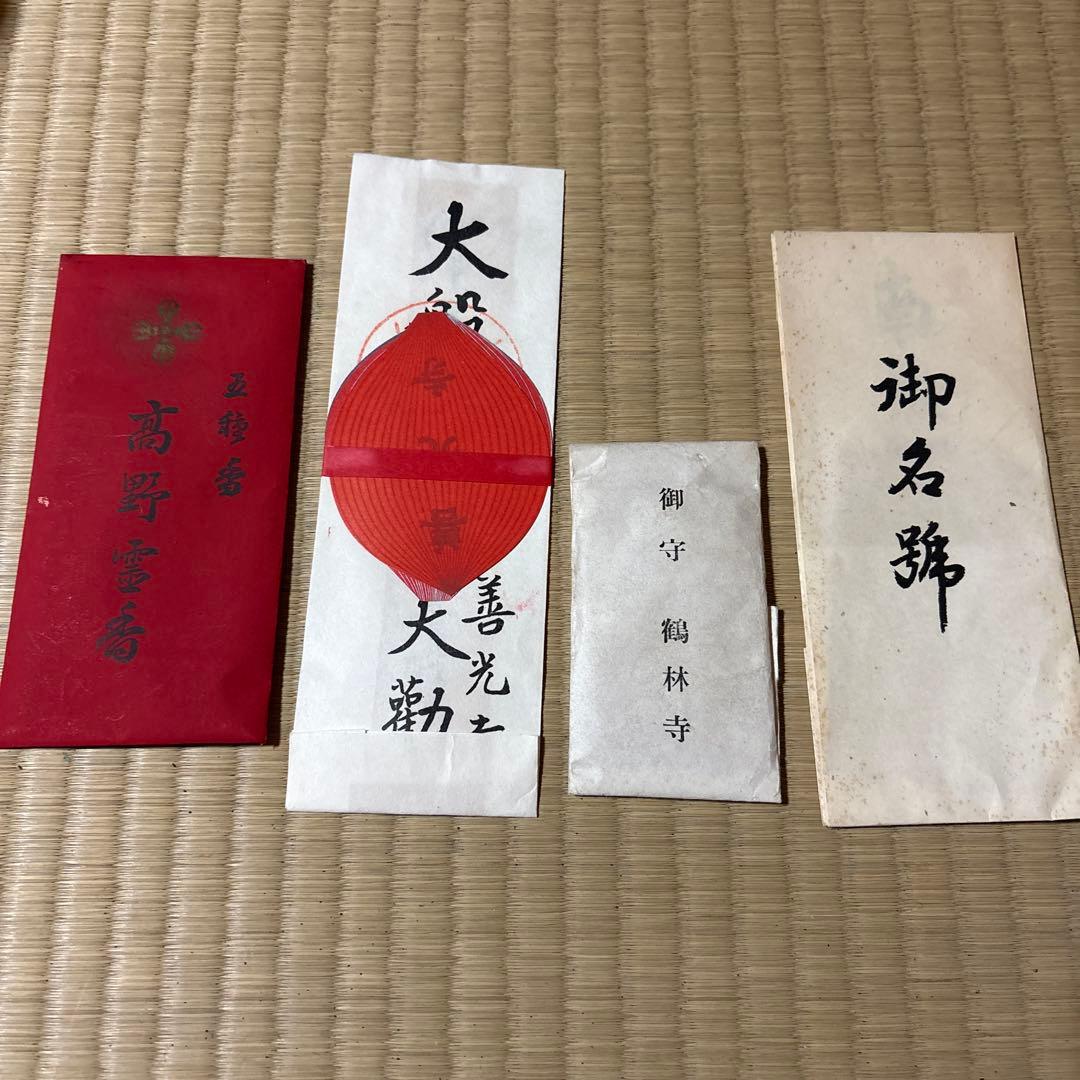 五種香
高野霊香
大般
寺光善
善光寺
大勸
御守 鶴林寺
御名號